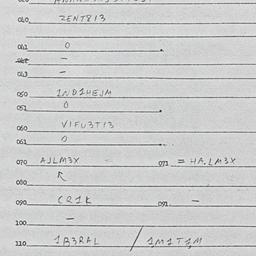 040 ZENT813
041 0
042 -
043 -
050 IND1HEJM
051 0
060 VIFU3T13
061 0
070 AJLM3X 071 = HA.LM3X
080
090 CR1K 091 -
100 -
110 1B3RAL / 1M1T1M